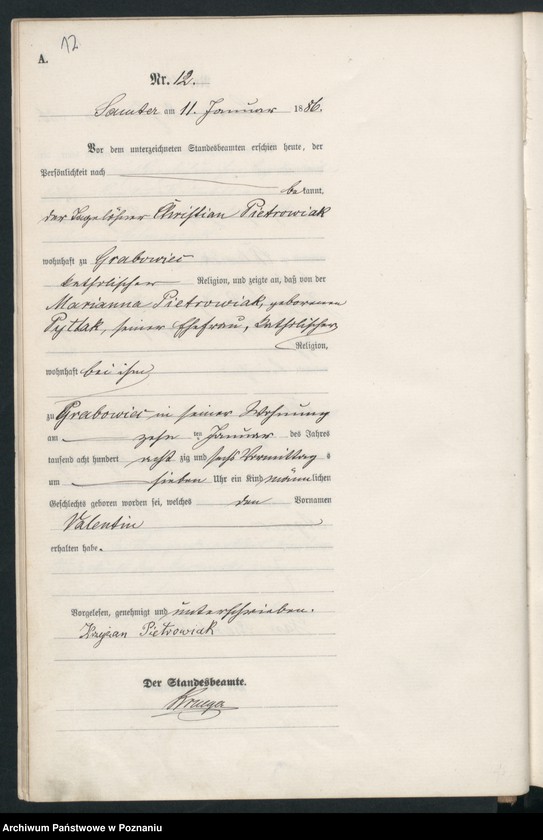 12
A.
Nr. 12.
Samter am 11. Januar 1886.
Vor dem unterzeichneten Standesbeamten erschien heute, der
Persönlichkeit nach
bekannt,
der Tagelöhner Christian Pietrowiak
wohnhaft zu Grabowiec
katholischer Religion, und zeigte an, daß von der
Marianna Pietrowiak, geborenen
Pytlak, seiner Ehefrau, katholischer
Religion,
wohnhaft bei ihm
zu Grabowiec in seiner Wohnung
am zehnten Januar des Jahres
tausend acht hundert achtzig und sechs Vormittags
um sieben Uhr ein Kind männlichen
Geschlechts geboren worden sei, welches den Vornamen
Valentin
erhalten habe.
Vorgelesen, genehmigt und unterschrieben.
Pietrowiak
Der Standesbeamte.
Archiwum Państwowe w Poznaniu